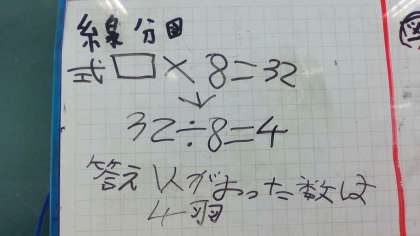 線分図
式□×8=32
↓
32÷8=4
答え 1人がおった数は
4羽